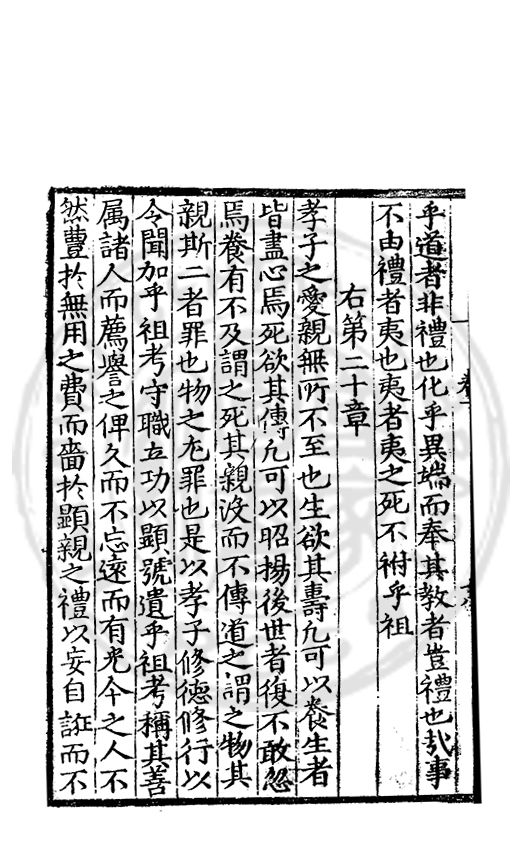 乎道者非禮也化乎異端而奉其教者豈禮也哉事
不由禮者夷也夷者夷之死不祔乎祖
右第二十章
孝子之愛親無所不至也生欲其壽凢可以養生者
皆盡心焉死欲其傳凢可以昭揚後世者復不敢忽
焉養有不及謂之死其親没而不傳道之謂之物其
親斯二者罪也物之尤罪也是以孝子修德修行以
令聞加乎祖考守職立功以顯號遺乎祖考稱其善
属諸人而薦譽之俾久而不忘遠而有光今之人不
然豐扵無用之費而嗇扵顯親之禮以妄自誑而不